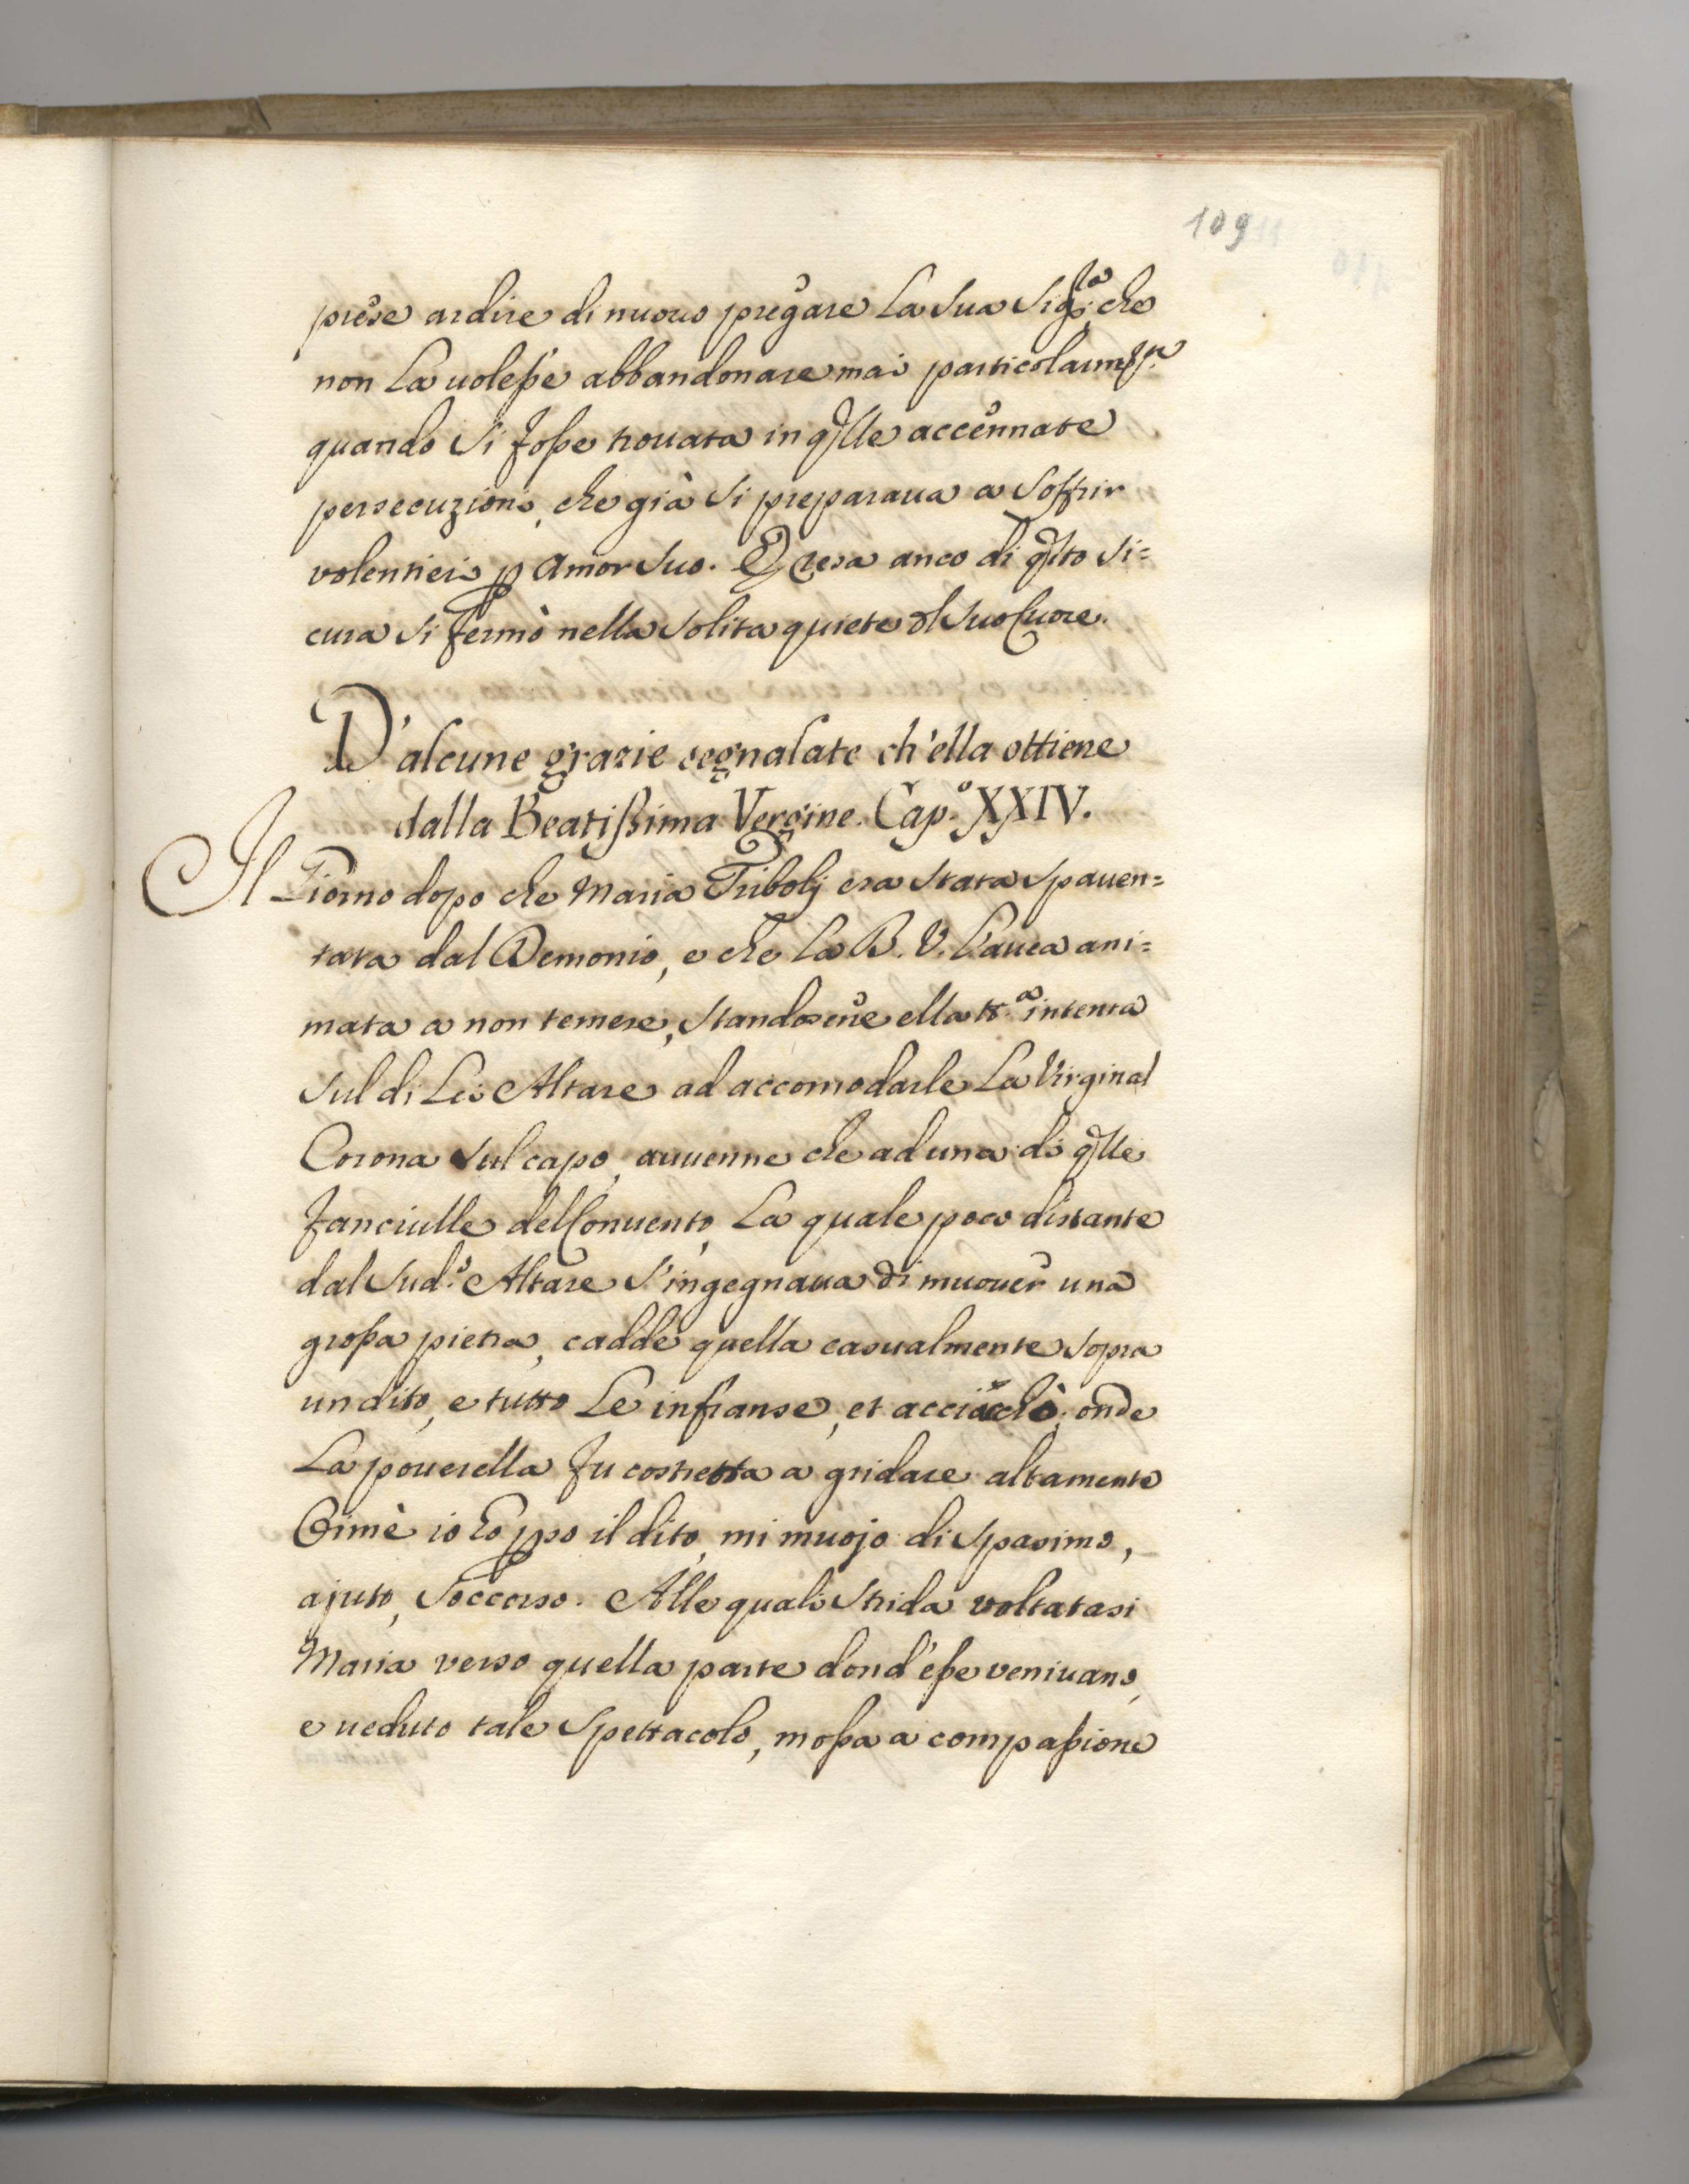 109
prese ardire di nuovo pregare La Sua Sig.ra che
non La uolesse abbandonare mai particolarm.te
quando Si fosse trouata in q̃lle accennate
persecuzioni, che già Si preparaua a Soffrir
volentieri p Amor Suo. E resa anco di q̃sto Si=
cura Si fermò nella Solita quiete dl Suo Cuore.
D'alcune grazie segnalate ch'ella ottiene
dalla Beatissima Vergine. Cap.o XXIV.
Il Giorno dopo che Maria Tribolj era Stata Spauen=
tata dal Demonio, e che La B. V. L'auea ani=
mata a non temere, Standosene ella tt.a intenta
Sul di Lei Altare ad accomodarle La Virginal
Corona Sul capo, auuenne che ad una di q̃lle
fanciulle del Conuento, La quale poco distante
dal Sud.o Altare S'ingegnaua di muouer una
grossa pietra, cadde quella casualmente Sopra
un dito, e tutto Le infranse, et acciacchò; onde
La pouerella fu costretta a gridare altamente
Oimè io ho pso il dito, mi muojo di Spasimo,
ajuto, Soccorso. Alle quali Strida voltatasi
Maria verso quella parte dond'esse veniuano,
e ueduto tale Spettacolo, mossa a compassione